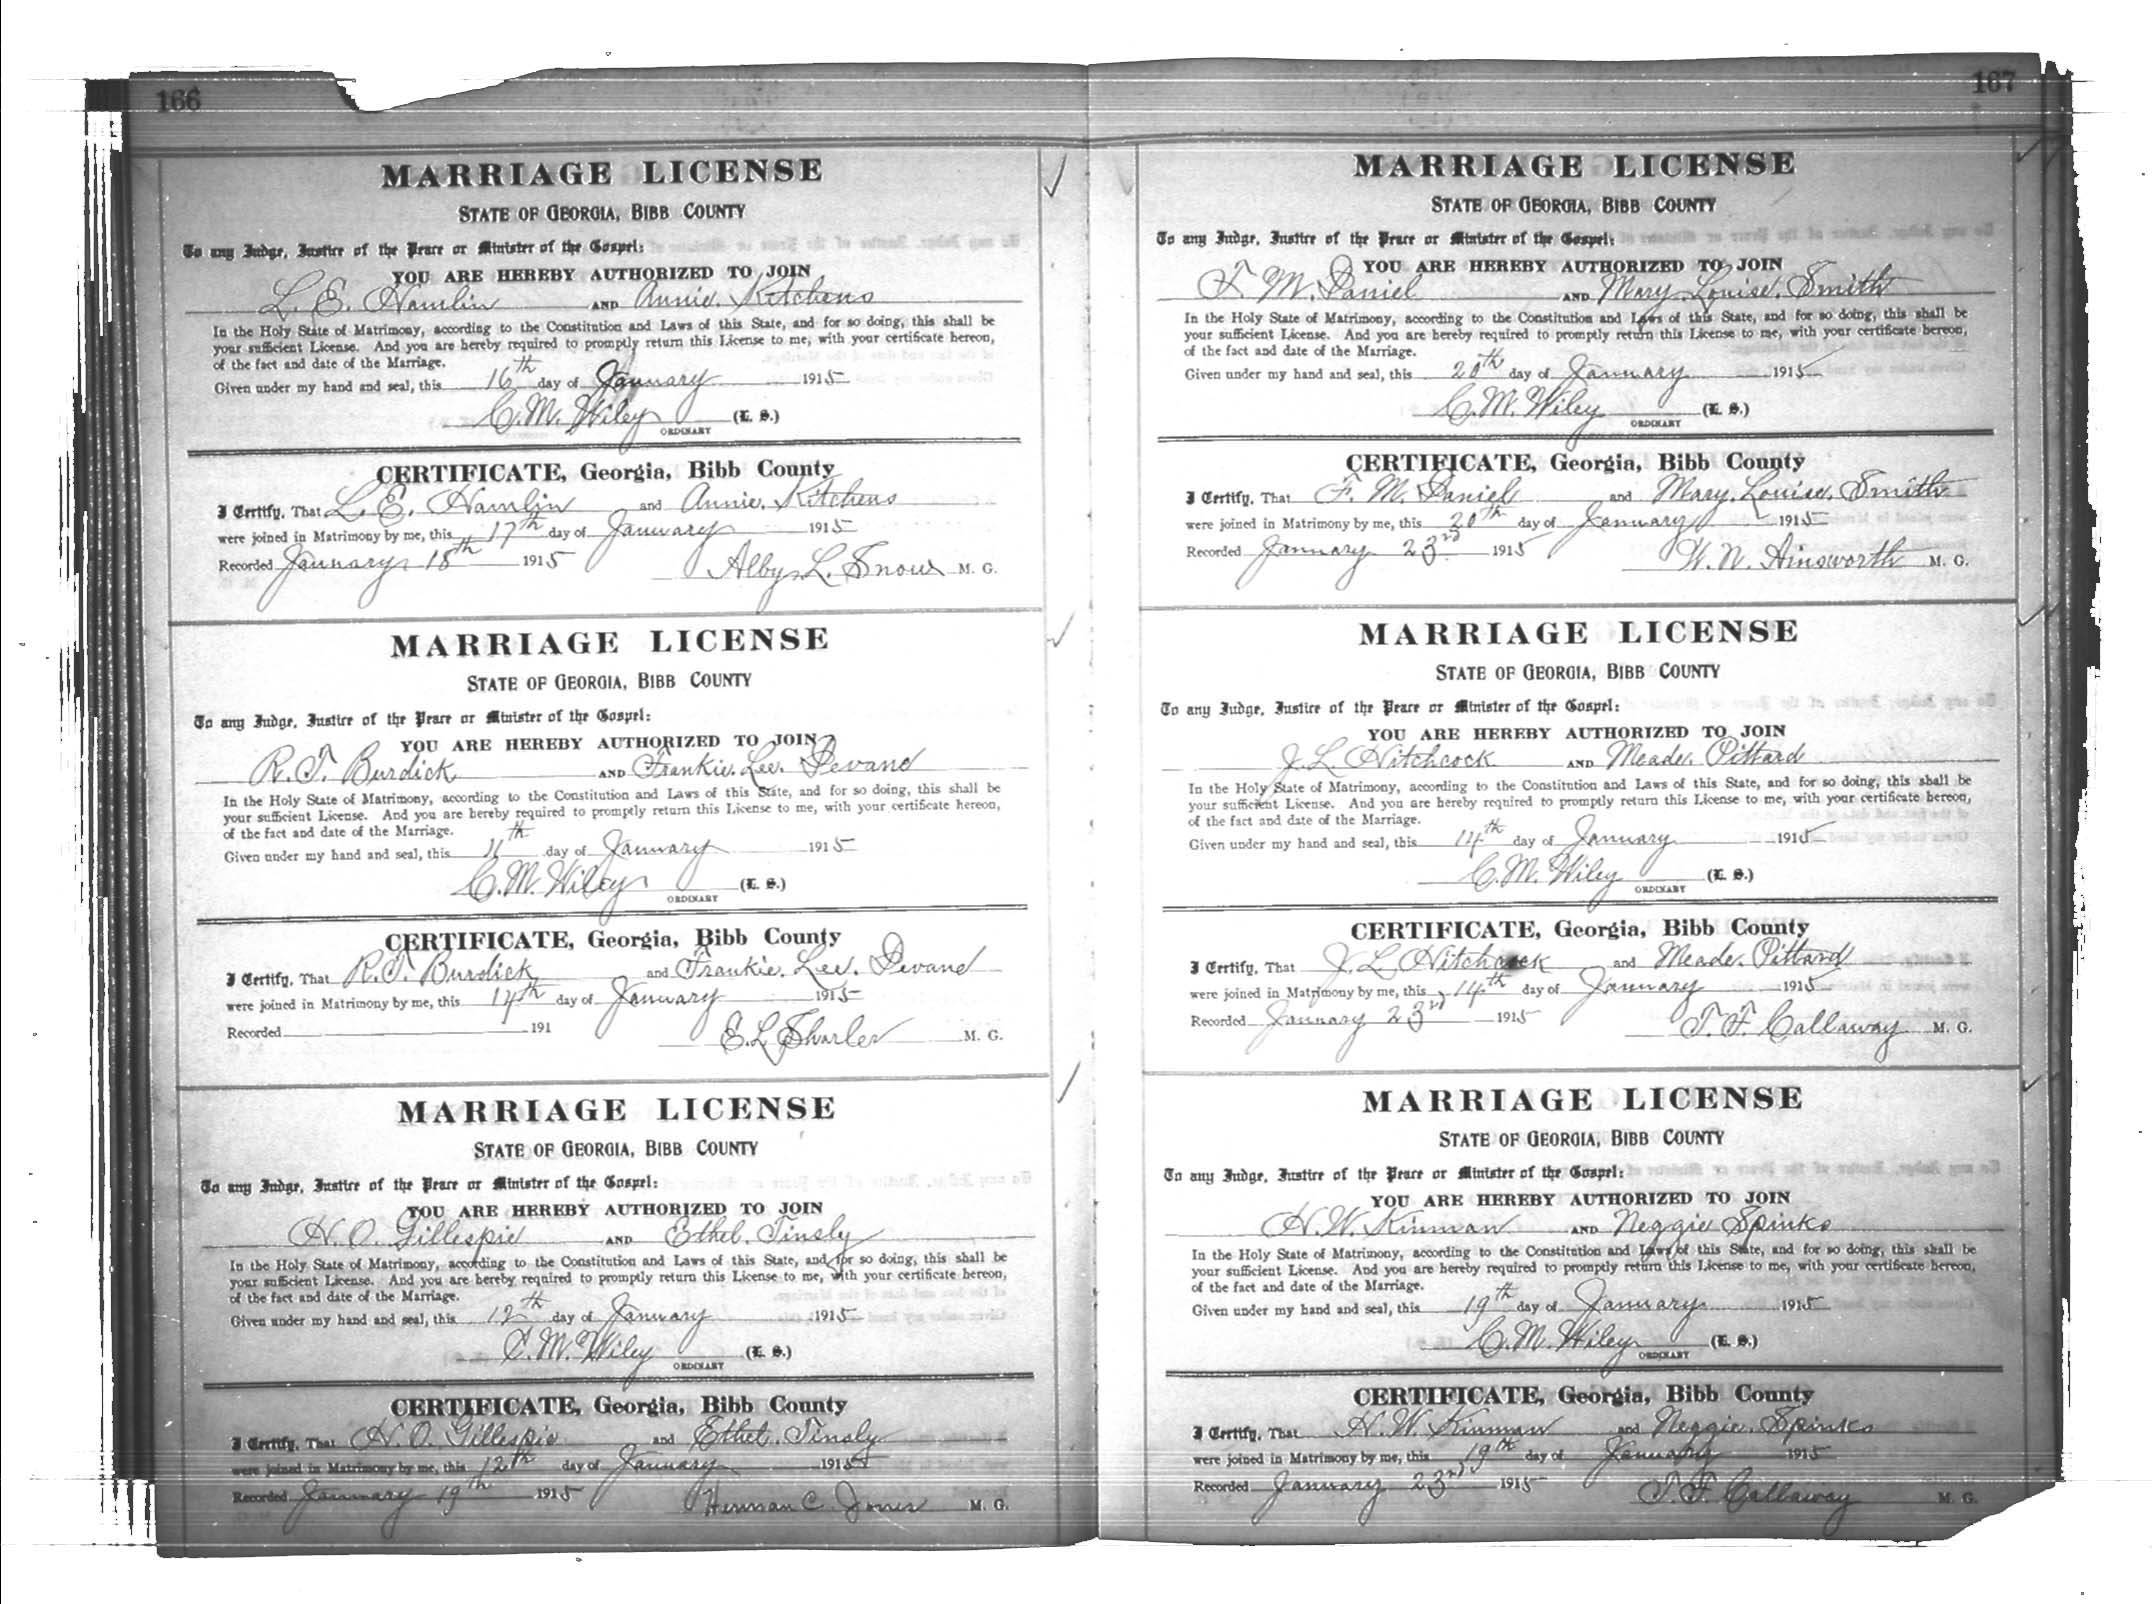 166
MARRIAGE LICENSE
STATE OF GEORGIA, BIBB COUNTY
To any Judge, Justice of the Peace or Minister of the Gospel:
YOU ARE HEREBY AUTHORIZED TO JOIN
L. E. Hamlin AND Annie Kitchens
In the Holy State of Matrimony, according to the Constitution and Laws of this State, and for so doing, this shall be
your sufficient License. And you are hereby required to promptly return this License to me, with your certificate hereon,
of the fact and date of the Marriage.
Given under my hand and seal, this 16th day of January 1915
C. M. Wiley (L. S.)
ORDINARY
CERTIFICATE, Georgia, Bibb County
I Certify, That L. E. Hamlin and Annie Kitchens
were joined in Matrimony by me, this 17th day of January 1915
Recorded January 18th 1915 Alby L. Snow M. G.
MARRIAGE LICENSE
STATE OF GEORGIA, BIBB COUNTY
To any Judge, Justice of the Peace or Minister of the Gospel:
YOU ARE HEREBY AUTHORIZED TO JOIN
R. T. Burdick AND Frankie Lee Devand
In the Holy State of Matrimony, according to the Constitution and Laws of this State, and for so doing, this shall be
your sufficient License. And you are hereby required to promptly return this License to me, with your certificate hereon,
of the fact and date of the Marriage.
Given under my hand and seal, this 11th day of January 1915
C. M. Wiley (L. S.)
ORDINARY
CERTIFICATE, Georgia, Bibb County
I Certify, That R. T. Burdick and Frankie Lee Devand
were joined in Matrimony by me, this 14th day of January 1915
Recorded 191 E. L. M. G.
MARRIAGE LICENSE
STATE OF GEORGIA, BIBB COUNTY
To any Judge, Justice of the Peace or Minister of the Gospel:
YOU ARE HEREBY AUTHORIZED TO JOIN
H. O. Gillespie AND Ethel Tinsly
In the Holy State of Matrimony, according to the Constitution and Laws of this State, and for so doing, this shall be
your sufficient License. And you are hereby required to promptly return this License to me, with your certificate hereon,
of the fact and date of the Marriage.
Given under my hand and seal, this 12th day of January 1915
C. M. Wiley (L. S.)
ORDINARY
CERTIFICATE, Georgia, Bibb County
I Certify, That H. O. Gillespie and Ethel Tinsly
were joined in Matrimony by me, this 12th day of January 1915
Recorded January 19th 1915 Herman C. Jones M. G.
167
MARRIAGE LICENSE
STATE OF GEORGIA, BIBB COUNTY
To any Judge, Justice of the Peace or Minister of the Gospel:
YOU ARE HEREBY AUTHORIZED TO JOIN
F. M. Daniel AND Mary Louise Smith
In the Holy State of Matrimony, according to the Constitution and Laws of this State, and for so doing, this shall be
your sufficient License. And you are hereby required to promptly return this License to me, with your certificate hereon,
of the fact and date of the Marriage.
Given under my hand and seal, this 20th day of January 1915
C. M. Wiley (L. S.)
ORDINARY
CERTIFICATE, Georgia, Bibb County
I Certify, That F. M. Daniel and Mary Louise Smith
were joined in Matrimony by me, this 20th day of January 1915
Recorded January 23rd 1915 W. N. Ainsworth M. G.
MARRIAGE LICENSE
STATE OF GEORGIA, BIBB COUNTY
To any Judge, Justice of the Peace or Minister of the Gospel:
YOU ARE HEREBY AUTHORIZED TO JOIN
J. L. Hitchcock AND Meade Pittard
In the Holy State of Matrimony, according to the Constitution and Laws of this State, and for so doing, this shall be
your sufficient License. And you are hereby required to promptly return this License to me, with your certificate hereon,
of the fact and date of the Marriage.
Given under my hand and seal, this 14th day of January 1915
C. M. Wiley (L. S.)
ORDINARY
CERTIFICATE, Georgia, Bibb County
I Certify, That J. L. Hitchcock and Meade Pittard
were joined in Matrimony by me, this 14th day of January 1915
Recorded January 23rd 1915 T. F. Callaway M. G.
MARRIAGE LICENSE
STATE OF GEORGIA, BIBB COUNTY
To any Judge, Justice of the Peace or Minister of the Gospel:
YOU ARE HEREBY AUTHORIZED TO JOIN
H. W. Kinman AND Neggie Spinks
In the Holy State of Matrimony, according to the Constitution and Laws of this State, and for so doing, this shall be
your sufficient License. And you are hereby required to promptly return this License to me, with your certificate hereon,
of the fact and date of the Marriage.
Given under my hand and seal, this 19th day of January 1915
C. M. Wiley (L. S.)
ORDINARY
CERTIFICATE, Georgia, Bibb County
I Certify, That H. W. Kinman and Neggie Spinks
were joined in Matrimony by me, this 19th day of January 1915
Recorded January 23rd 1915 T. F. Callaway M. G.